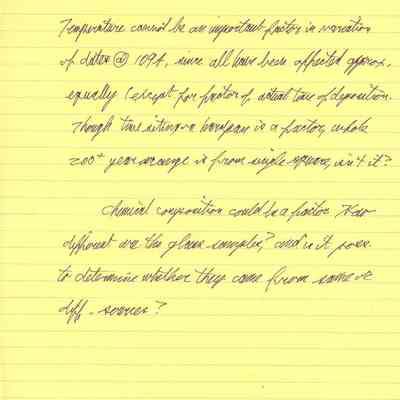 Temperature cannot be an important factor in variation
of dates @ 109A, since all have been affected approx.
equally (except for factor of actual time of deposition.
Though this is a factor, whole
200+ year scrange is from single square, isn't it?
Chemical composition could be a factor. How
different are the glass samples? and is it poss
to determine whether they came from same or
diff. sources?